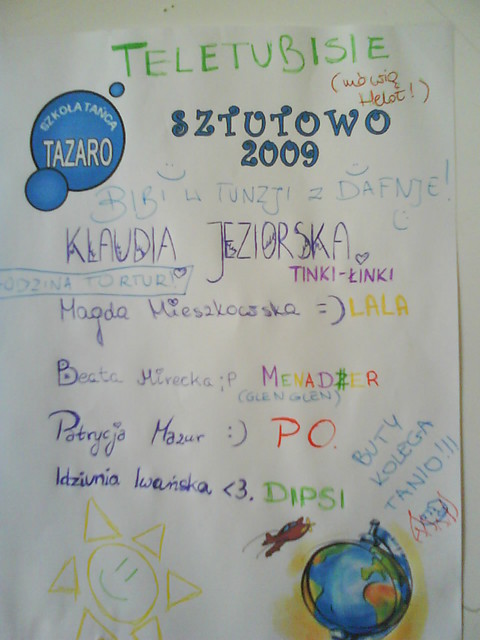 TELETUBISIE
(mówią
Helot!)
SZKOŁA TAŃCA
TAZARO
SZTUTOWO
2009
BIBI W TUNZJI Z DAFNJE!
KLAUDIA JEZIORSKA
TINKI-ŁINKI
GODZINA TORTUR!
Magda Mieszkowska =) LALA
Beata Mirecka ;P MENADŻER
(GLEN GLEN)
Patrycja Mazur :) PO.
Idziunia Iwańska <3. DIPSI
BUTY
KOLEGA
TANIO!!!